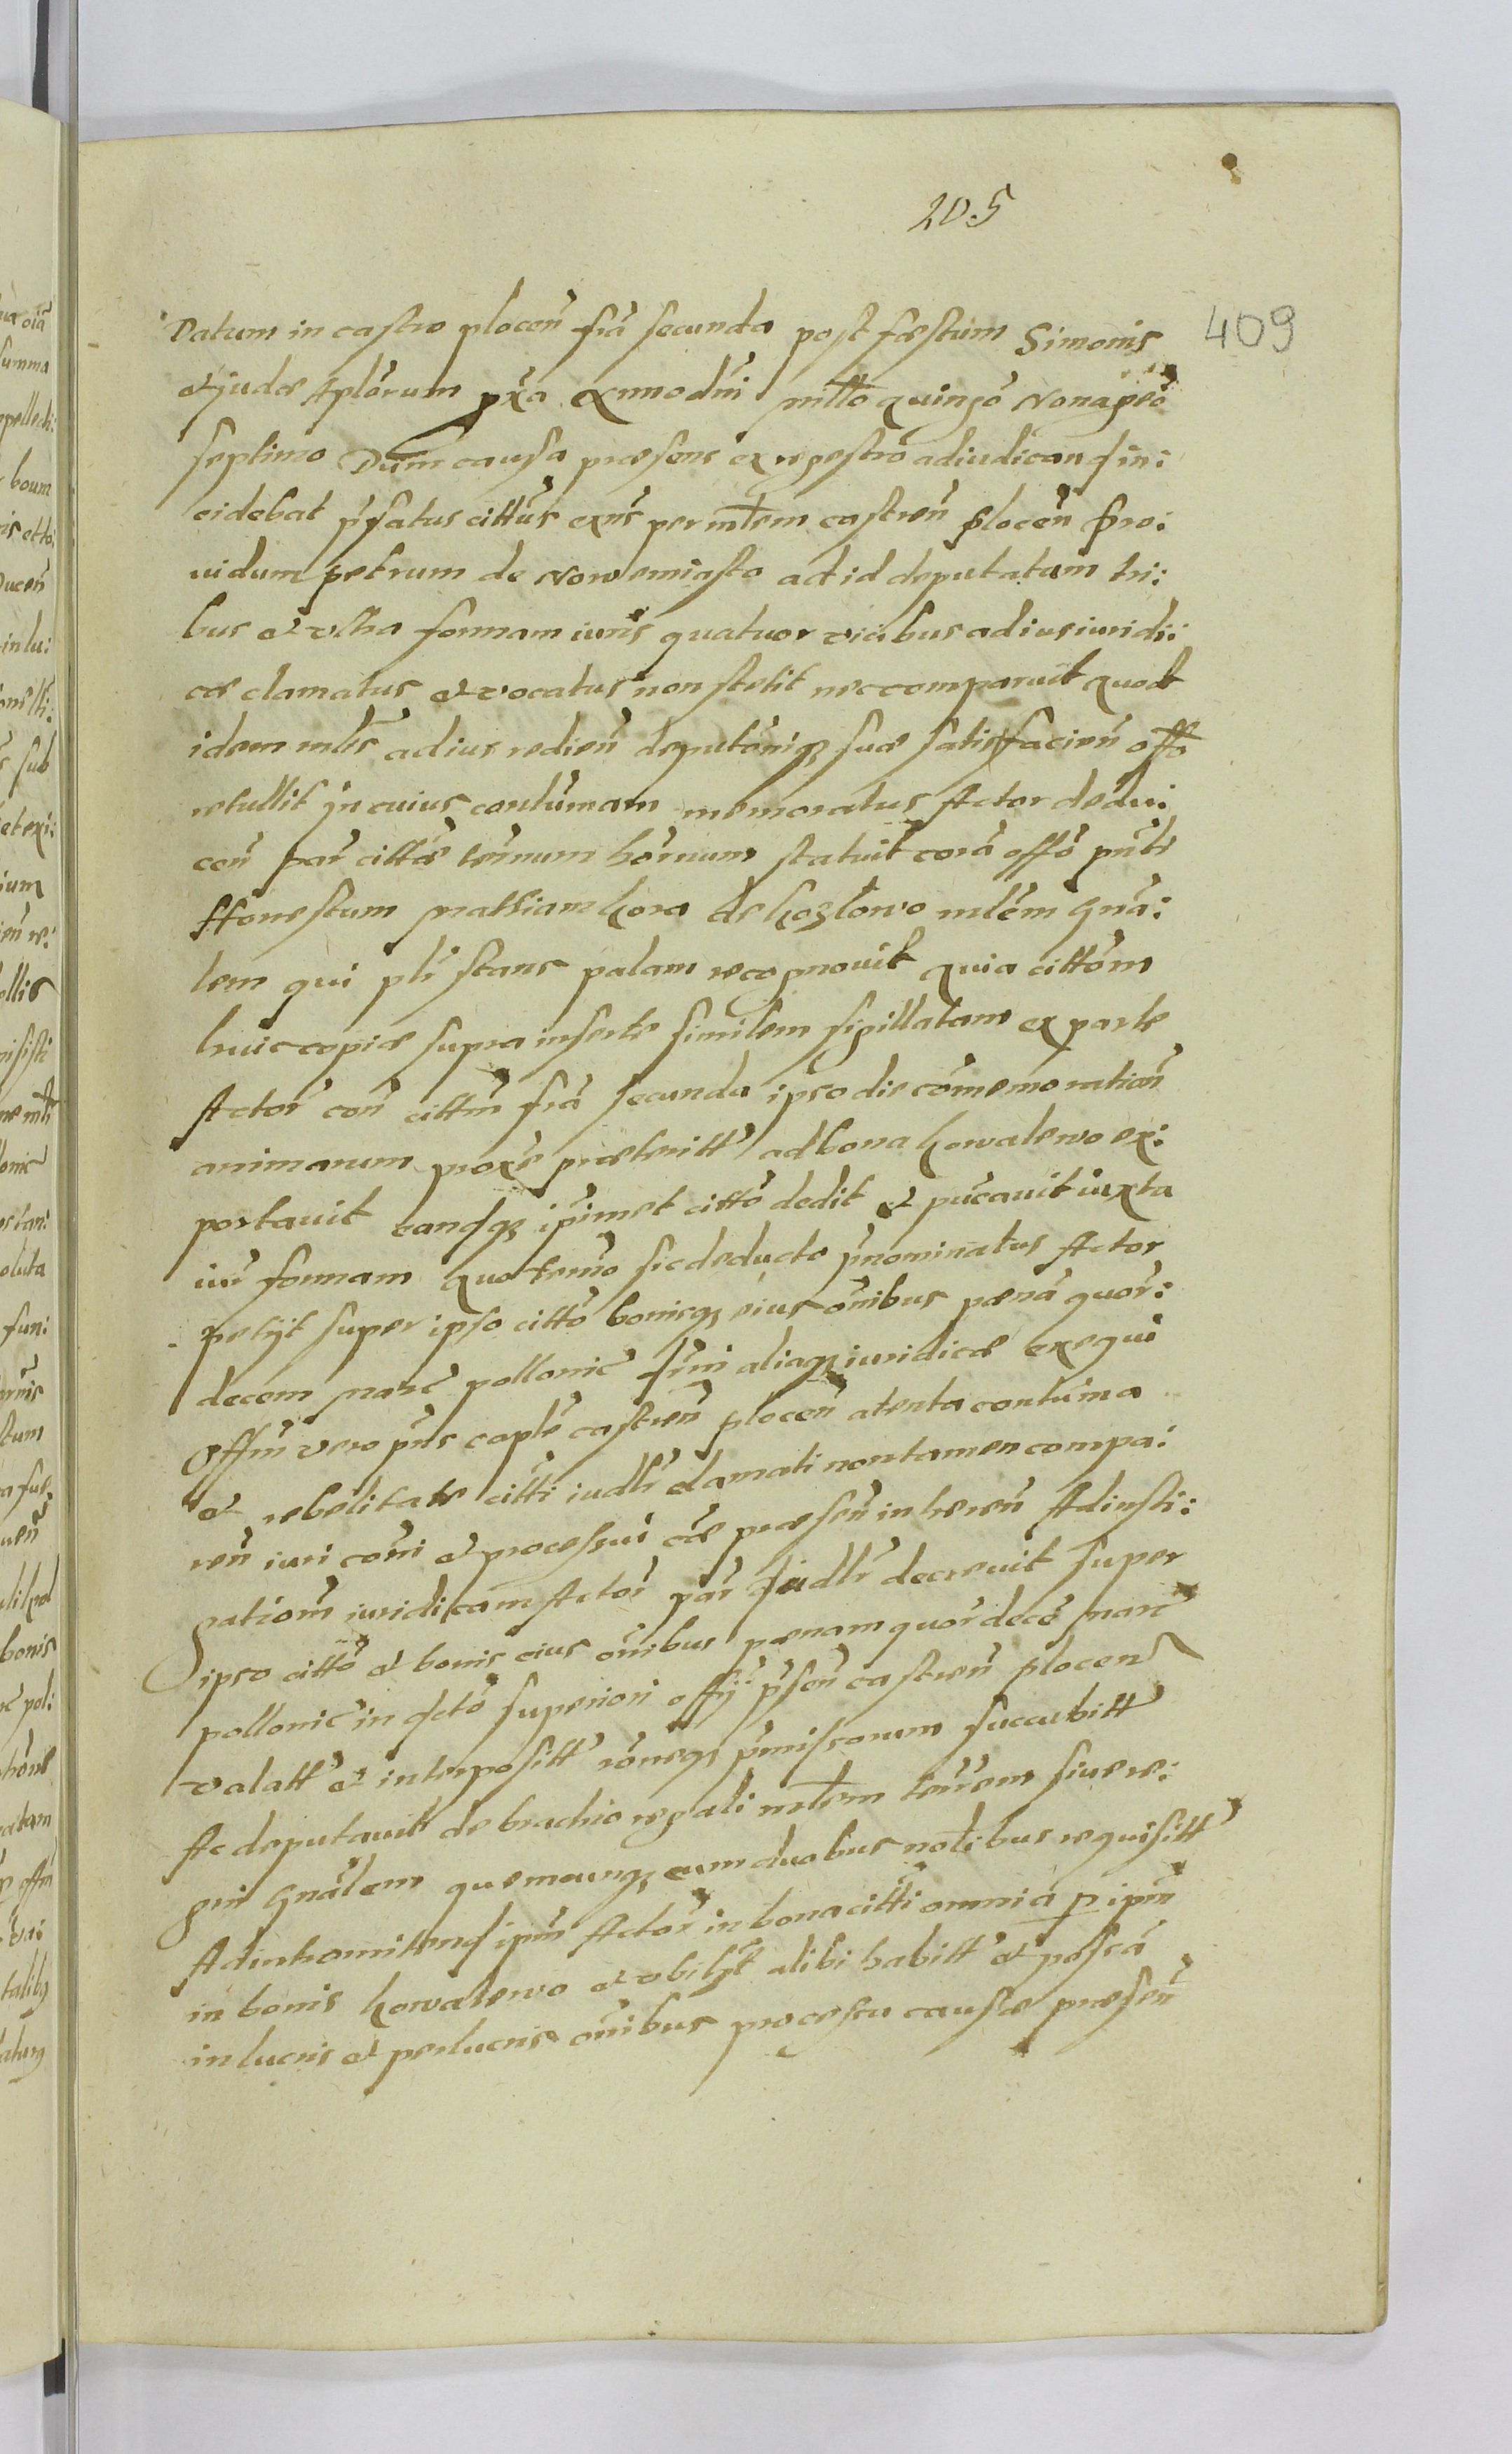 205
409
Datum in castro plocen̄ fr̄a secunda post fæstum Simonis
et judæ Apl̄orum prx̄a Annodn̄i mill̄o quinḡo Nonaḡeō
septimo Dum causa præsens ex regestro adiudicand in:
cidebat p̄fatus citt̄us exn̄s per ml̄em castren̄ plocen̄ Pro:
uidum petrum de Nowemiasto ad id deputatum tri:
bus et vltra formam iuris quatuor vicibus adius iuridi:
cæ clamatus et vocatus non stetit nec comparuit quod
idem ml̄es adius redien̄ deputōniq suæ satisfacien̄ off̄o
retullit jn cuius contūmam memoratus Actor dedu:
cen̄ par̄ citt̄æ termum hōrnum statuit corā off̄o pn̄ti
Honestum mathiam kora de kozlowo ml̄em gnā:
lem qui pl̄r stans palam recognouit quia citt̄ōm
huic copiæ supra insertæ similem sigillatam ex parte
Actor̄ con̄ citt̄m fr̄a secunda ipso die cōmemoration̄
animarum prox̄e præteritt̄ ad bona kowalewo ex:
portauit eandq ip̄imet citt̄o dedit et pūcauit iuxta
iur̄ formam quo termō sic deducto p̄nominatus Actor
petijt super ipso citt̄o bonisq eius ōnibus pœnā quor̄:
decem marc̄ pollonic̄ lūri aliaq iuridicæ exequi
Off̄m vero pn̄s capl̄e castren̄ plocen̄ atenta contūma
et rebelitate citt̄i iudl̄r clamati non tamen compa:
ren̄ iuri cōni et processui cæ præsen̄ inheren̄ Ad insti:
gationem iuridicam Actor̄ par̄ judl̄r decreuit super
ipso citt̄o et bonis eius ōnibus pœnam quor̄decē marc̄
pollonic̄ in dcto superiori off̄ij p̄sen̄ castren̄ plocen̄
valatt̄ et interpositt̄ rōneq p̄missorum succubitt̄
Ac deputauit de brachio regali ml̄em terrem siue re:
gni gnālem quemcunq cum duobus nol̄ibus requisitt̄
Ad intromittend ipm̄ Actor̄ in bona citt̄i omnia p ipm̄
in bonis kowalewo et vbilȳt alibi habitt̄ et possā
in lucris et perlucris ōnibus processu causæ præsen̄